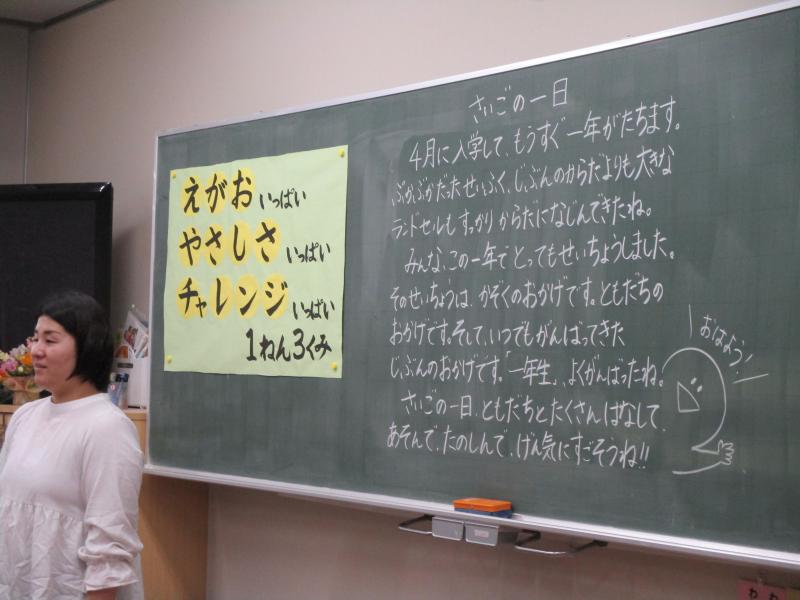 えがおいっぱい
やさしさいっぱい
チャレンジいっぱい
1ねん3くみ
さいごの一日
4月に入学して、もうすぐ一年がたちます。
ぶかぶかだったせいふく、じぶんのからだよりも大きな
ランドセルも すっかり からだになじんできたね。
みんな、この一年で とっても せいちょうしました。
そのせいちょうは、かぞくのおかげです。ともだちの
おかげです。そして、いつでもがんばってきた
じぶんのおかげです。「一年生」、よくがんばったね。
さいごの一日、ともだちと たくさん はなして、
あそんで、たのしんで、げん気に すごそうね!!
おはよう!